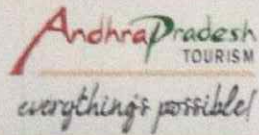 Andhra Pradesh
TOURISM
everything's possible!